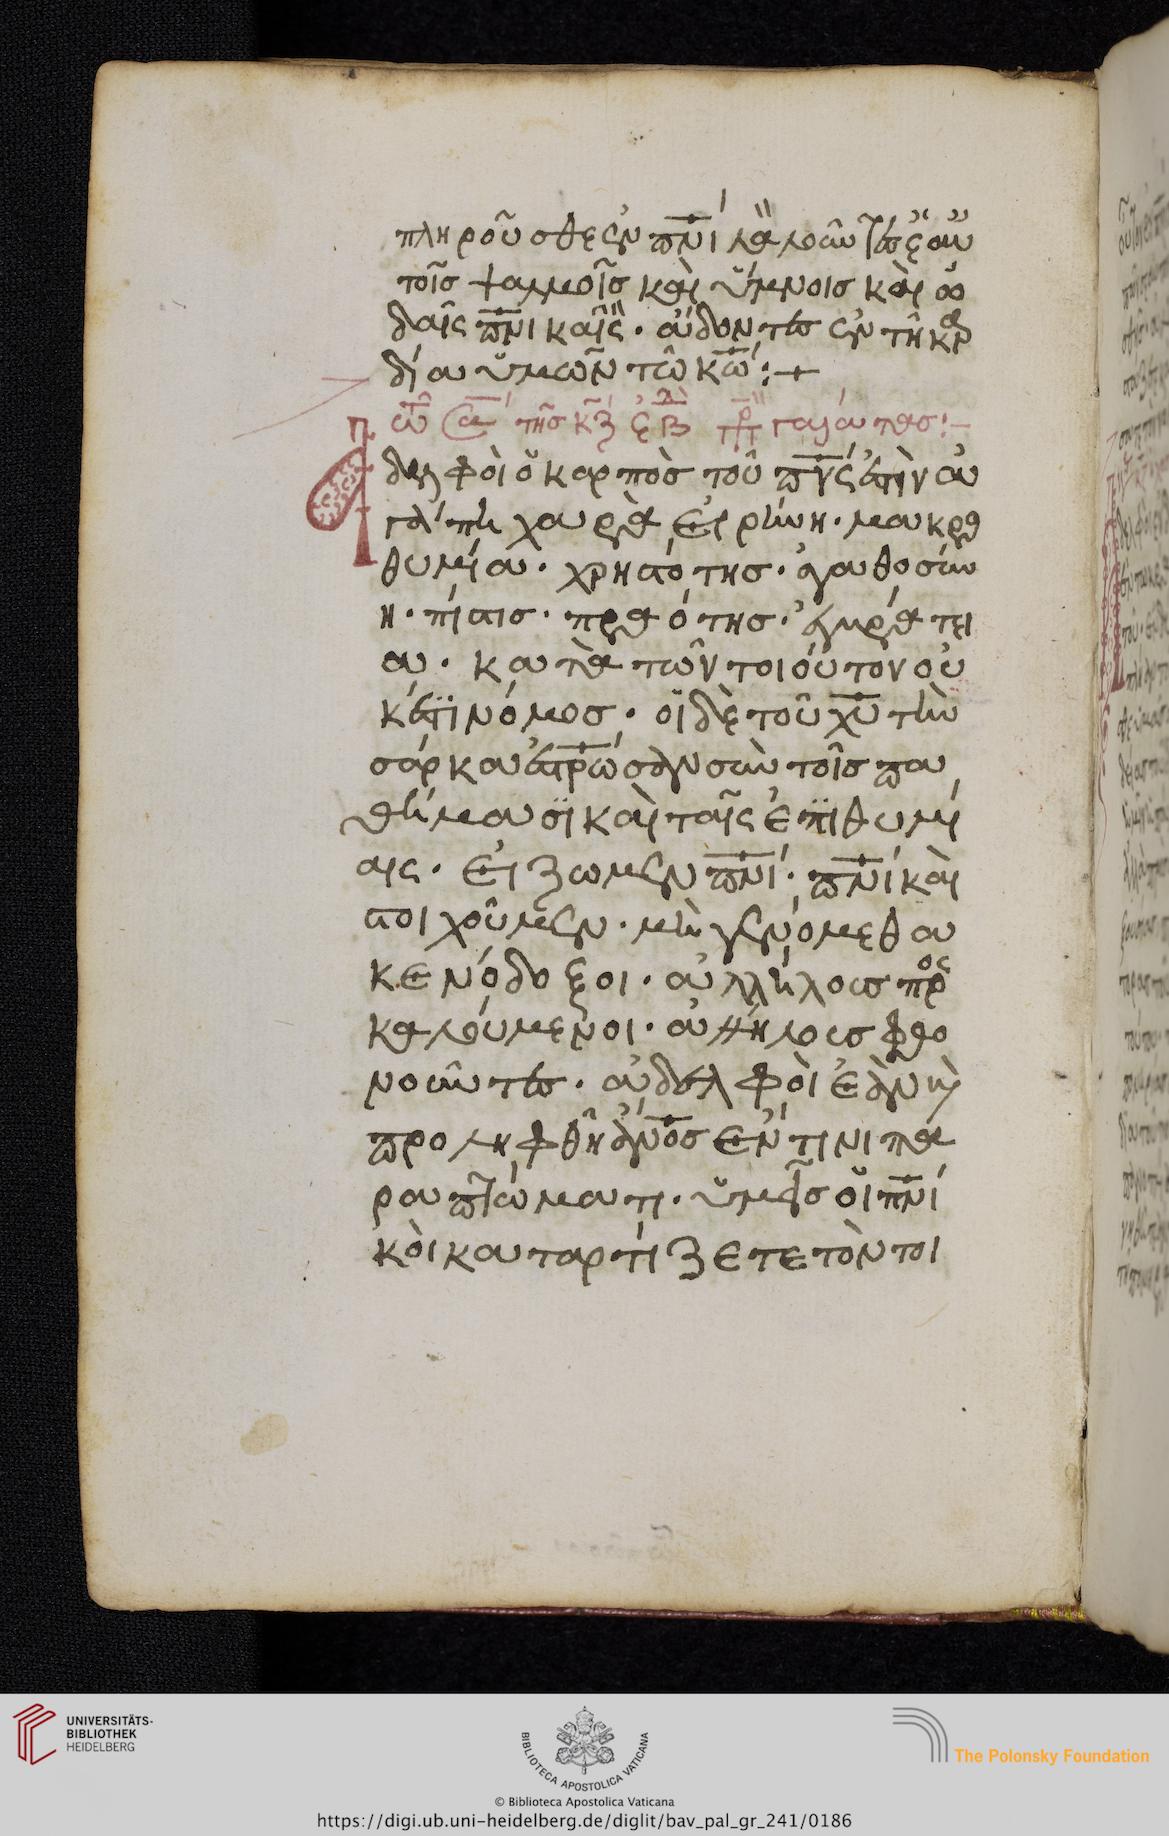 πληροῦσθε ἐν πν̅ι λαλοῦντες ἑαυ
τοῖς ψαλμοῖς καὶ ὕμνοις καὶ ὠ
δαῖς πν̅ικαῖς· ἄδοντες ἐν τῆ καρ
δία ὑμῶν τῶ κω̅:+
τῆς κζ ἑβ πρ γαλάτας:-
Ἀδελφοὶ ὁ καρπὸς τοῦ πν̅ς ἐστὶν ἀ
γάπη χαρὰ εἰρήνη· μακρο
θυμία· χρηστότης· ἀγαθοσύν
η· πίστις· πραότης· ἐγκράτει
α· κατὰ τῶν τοιούτον οὐ
κ ἔστι νόμος· οἱ δὲ τοῦ χυ̅ τὴν
σάρκα ἐστρω̅σαν σὺν τοῖς πα
θήμασι καὶ ταῖς ἐπιθυμί
αις· εἰ ζωμεν πν̅ι· πν̅ι καὶ
στοιχοῦμεν· μὴ γενόμεθα
κενόδοξοι· ἀλλήλους προς
καλούμενοι· ἀλλήλοις φθο
νοῦντες· ἀδελφοὶ ἐὰν κὴ
προληφθῆ ἀν̅ος ἔν τινι πα
ραπτώματι· ὑμεῖς οἱ πν̅ι
κοὶ καταρτίζετε τὸν τοι
UNIVERSITÄTS-
BIBLIOTHEK
HEIDELBERG
BIBLIOTECA APOSTOLICA VATICANA
The Polonsky Foundation
© Biblioteca Apostolica Vaticana
https://digi.ub.uni-heidelberg.de/diglit/bav_pal_gr_241/0186